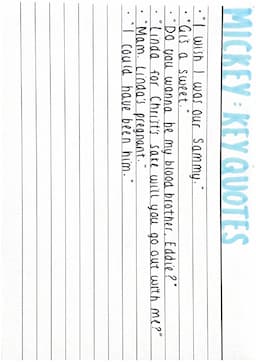 MICKEY: KEY QUOTES
• "I wish I was our Sammy."
• "Gis a sweet."
• "Do you wanna be my blood brother, Eddie?"
• "Linda for Christ's sake will you go out with me?"
• "Mam. Linda's pregnant."
• "I could have been him."